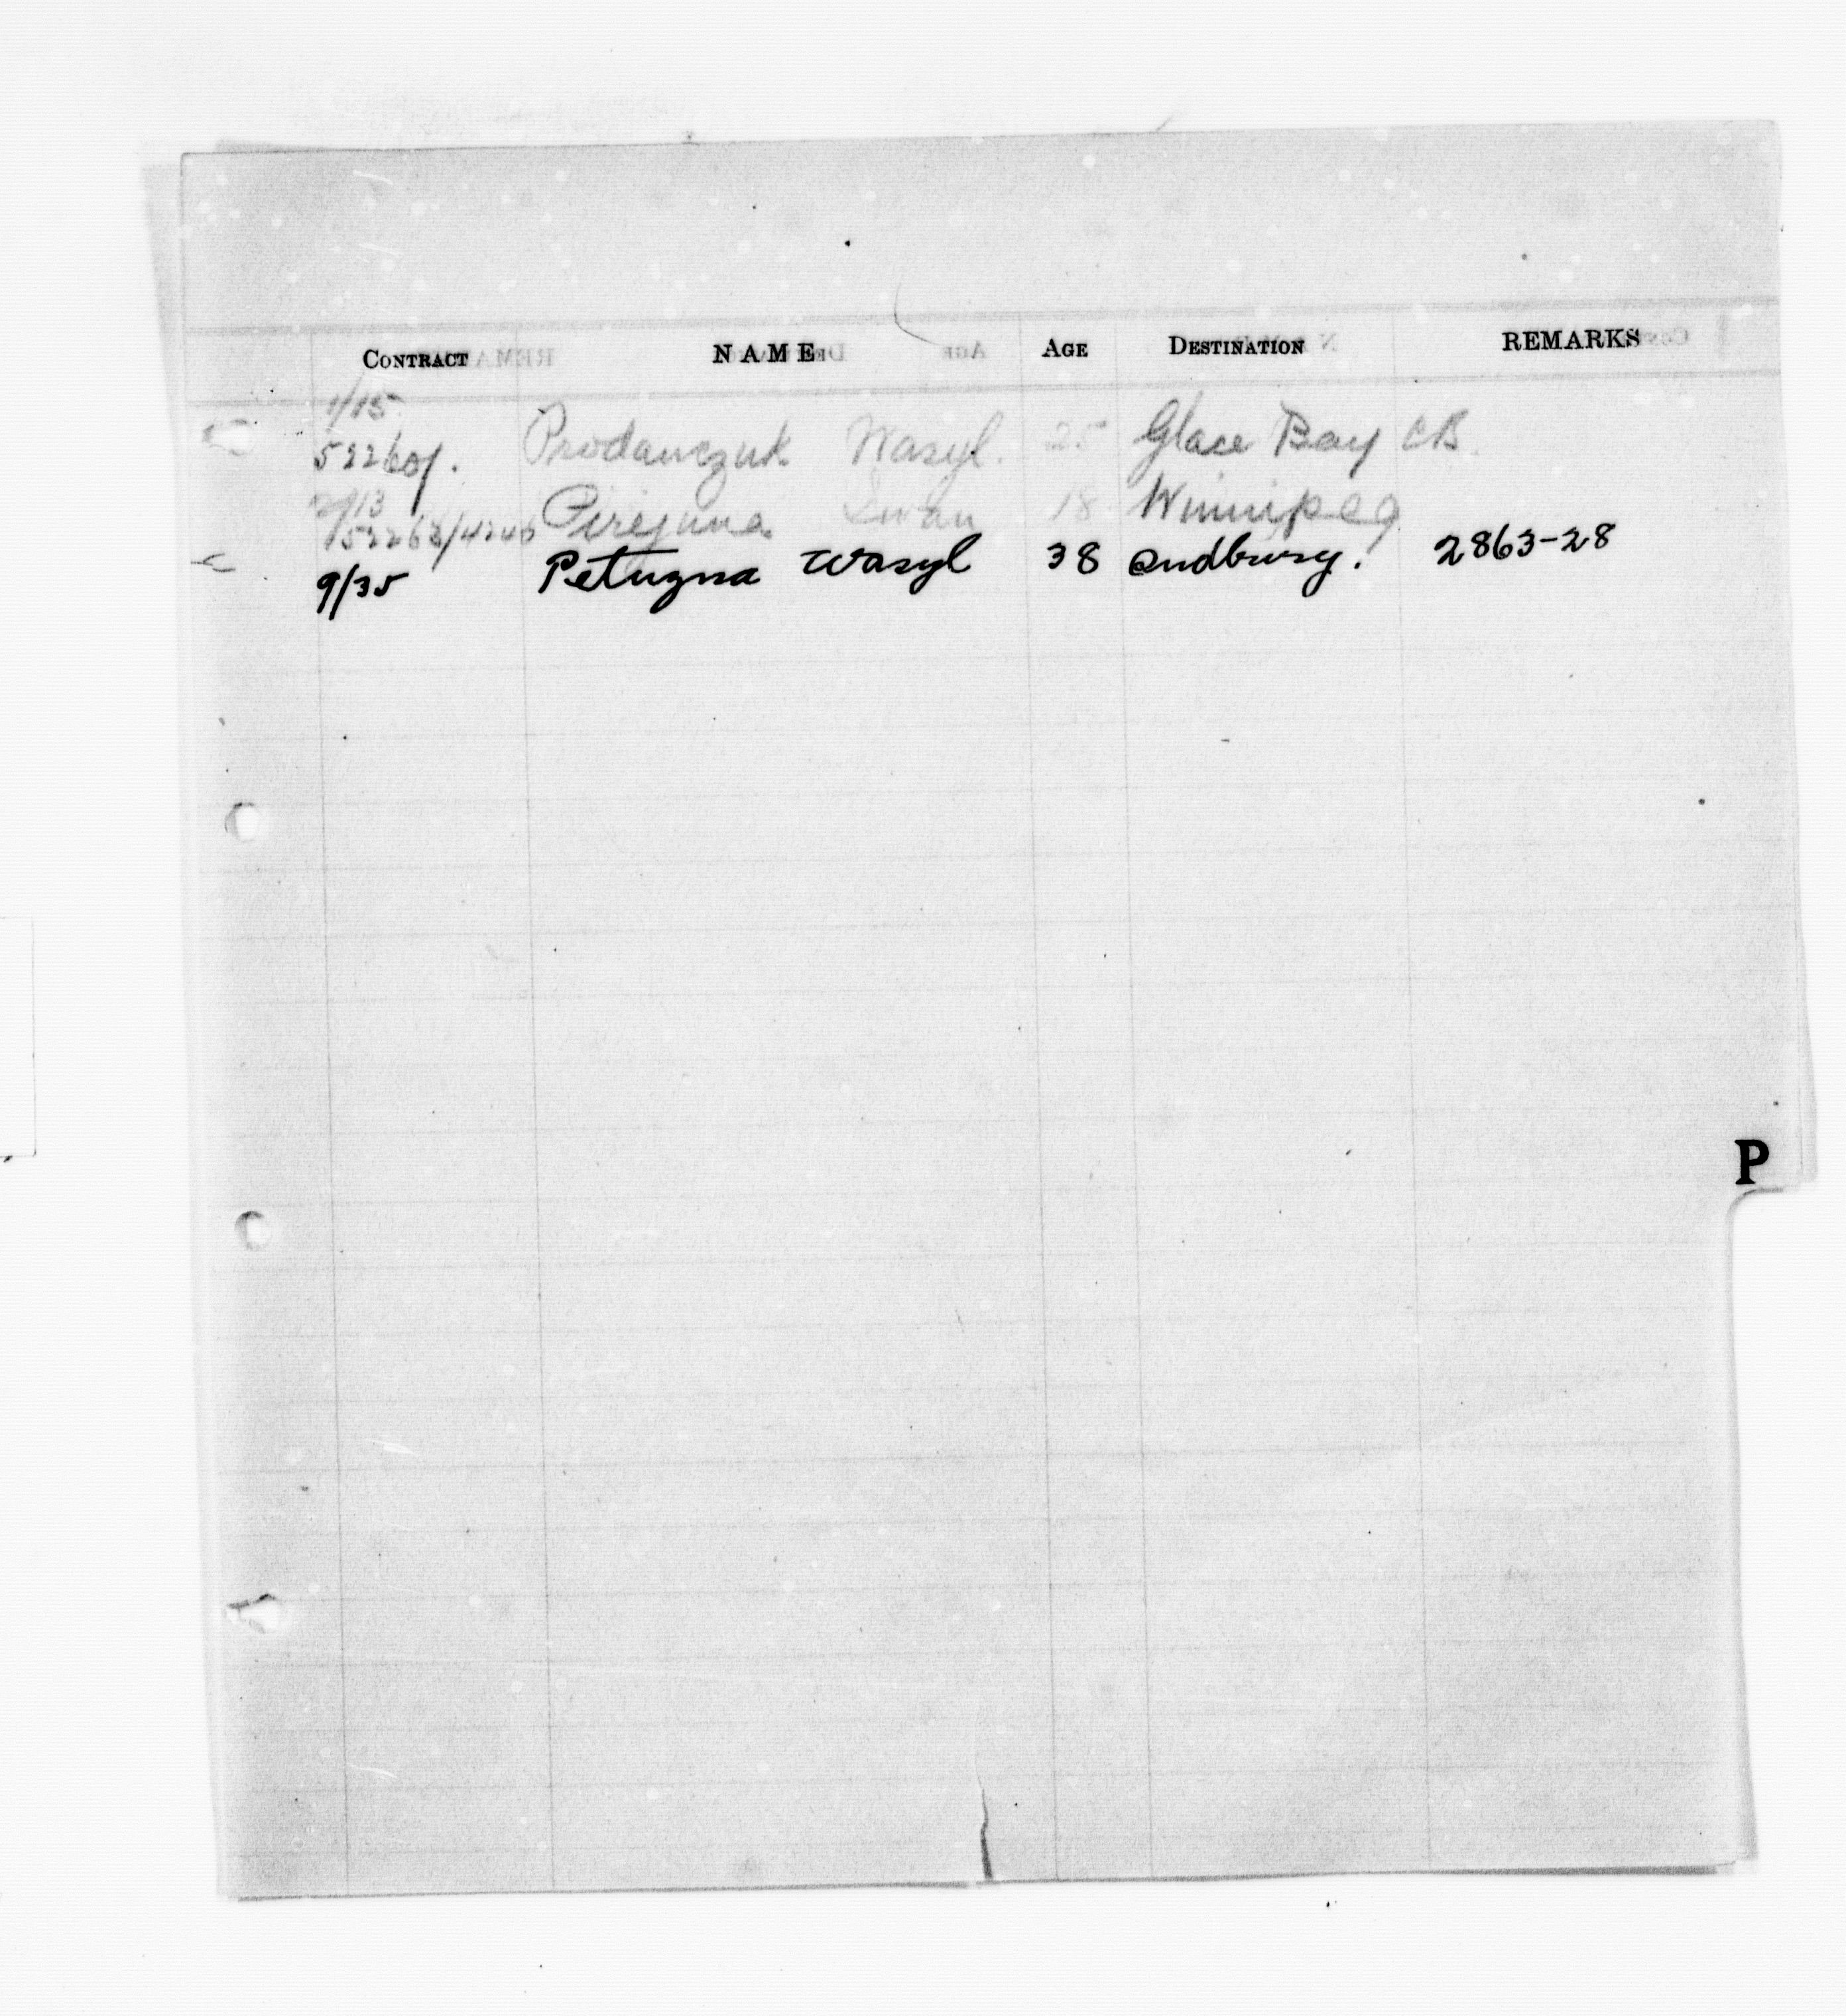 CONTRACT NAME AGE DESTINATION REMARKS
1/15
52260/. Prodanczuk Wasyl. 25 Glace Bay CB.
2/13
Pirejuna Iwan 18 Winnipeg
9/35 Petuzna Wasyl 38 Sudbury. 2863-28
P